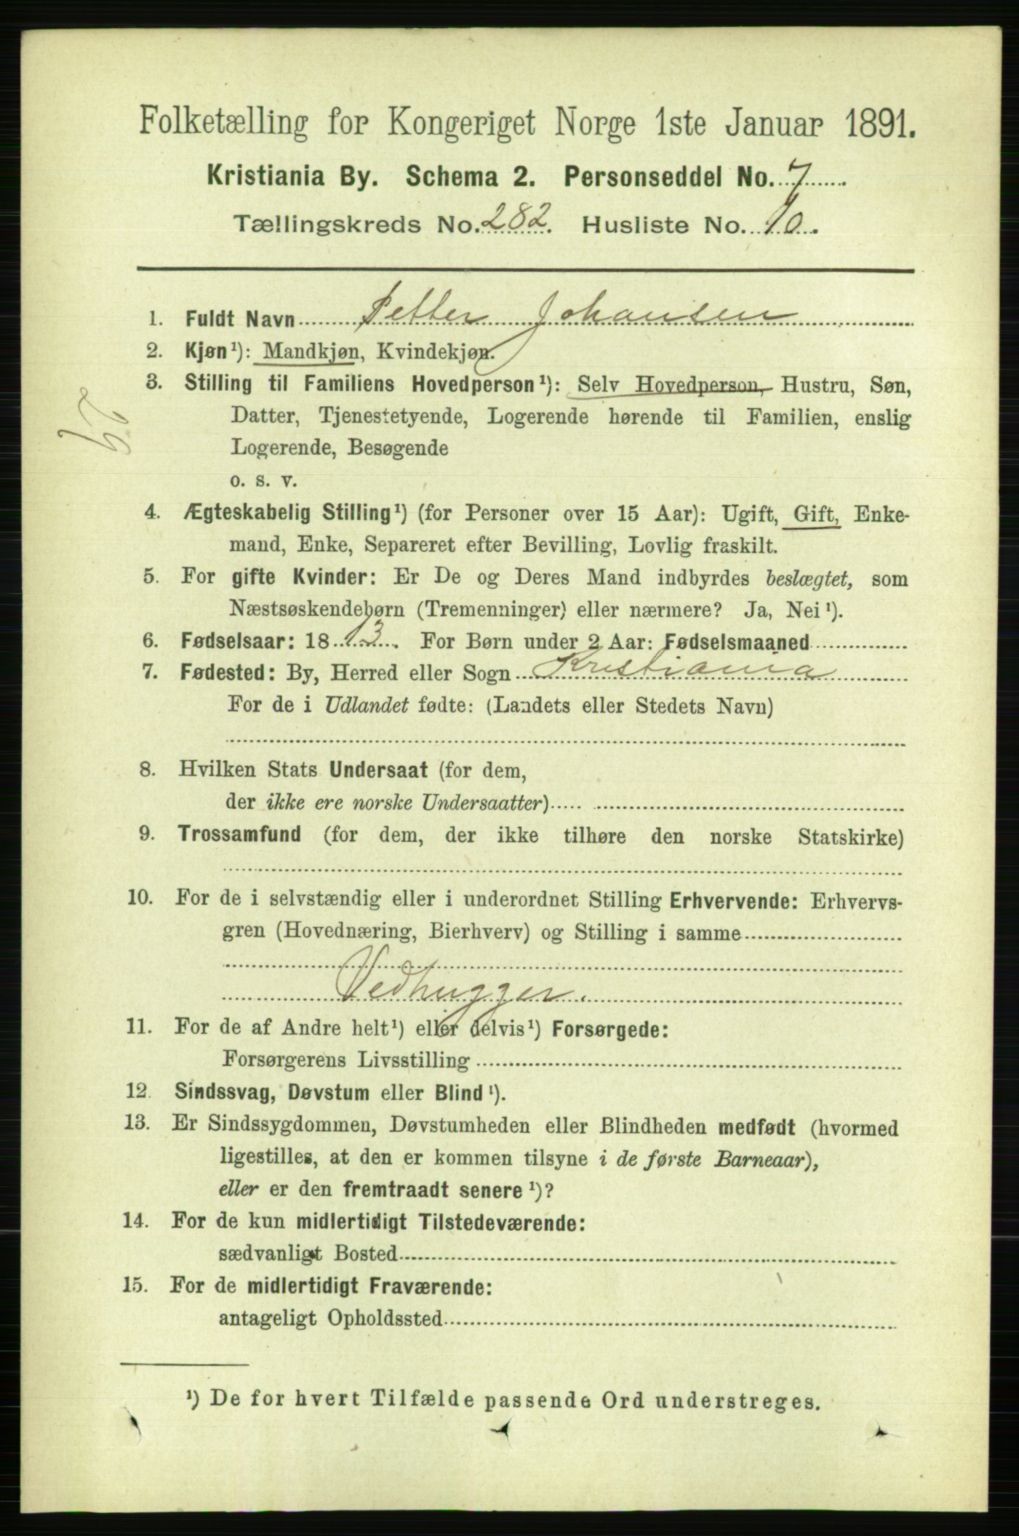 Folketælling for Kongeriget Norge 1ste Januar 1891.
Kristiania By. Schema 2. Personseddel No. 7
Tællingskreds No. 282. Husliste No. 10.
1. Fuldt Navn Petter Johansen
2. Kjøn¹): Mandkjøn, Kvindekjøn.
3. Stilling til Familiens Hovedperson¹): Selv Hovedperson, Hustru, Søn,
Datter, Tjenestetyende, Logerende hørende til Familien, enslig
Logerende, Besøgende
o. s. v.
4. Ægteskabelig Stilling¹) (for Personer over 15 Aar): Ugift, Gift, Enke-
mand, Enke, Separeret efter Bevilling, Lovlig fraskilt.
5. For gifte Kvinder: Er De og Deres Mand indbyrdes beslægtet, som
Næstsøskendebørn (Tremenninger) eller nærmere? Ja, Nei¹).
6. Fødselsaar: 1813. For Børn under 2 Aar: Fødselsmaaned
7. Fødested: By, Herred eller Sogn Kristiania
For de i Udlandet fødte: (Landets eller Stedets Navn)
8. Hvilken Stats Undersaat (for dem,
der ikke ere norske Undersaatter)
9. Trossamfund (for dem, der ikke tilhøre den norske Statskirke)
10. For de i selvstændig eller i underordnet Stilling Erhvervende: Erhvervs-
gren (Hovednæring, Bierhverv) og Stilling i samme
Vedhugger.
11. For de af Andre helt¹) eller delvis¹) Forsørgede:
Forsørgerens Livsstilling
12. Sindssvag, Døvstum eller Blind¹).
13. Er Sindssygdommen, Døvstumheden eller Blindheden medfødt (hvormed
ligestilles, at den er kommen tilsyne i de første Barneaar),
eller er den fremtraadt senere¹)?
14. For de kun midlertidigt Tilstedeværende:
sædvanligt Bosted
15. For de midlertidigt Fraværende:
antageligt Opholdssted
¹) De for hvert Tilfælde passende Ord understreges.